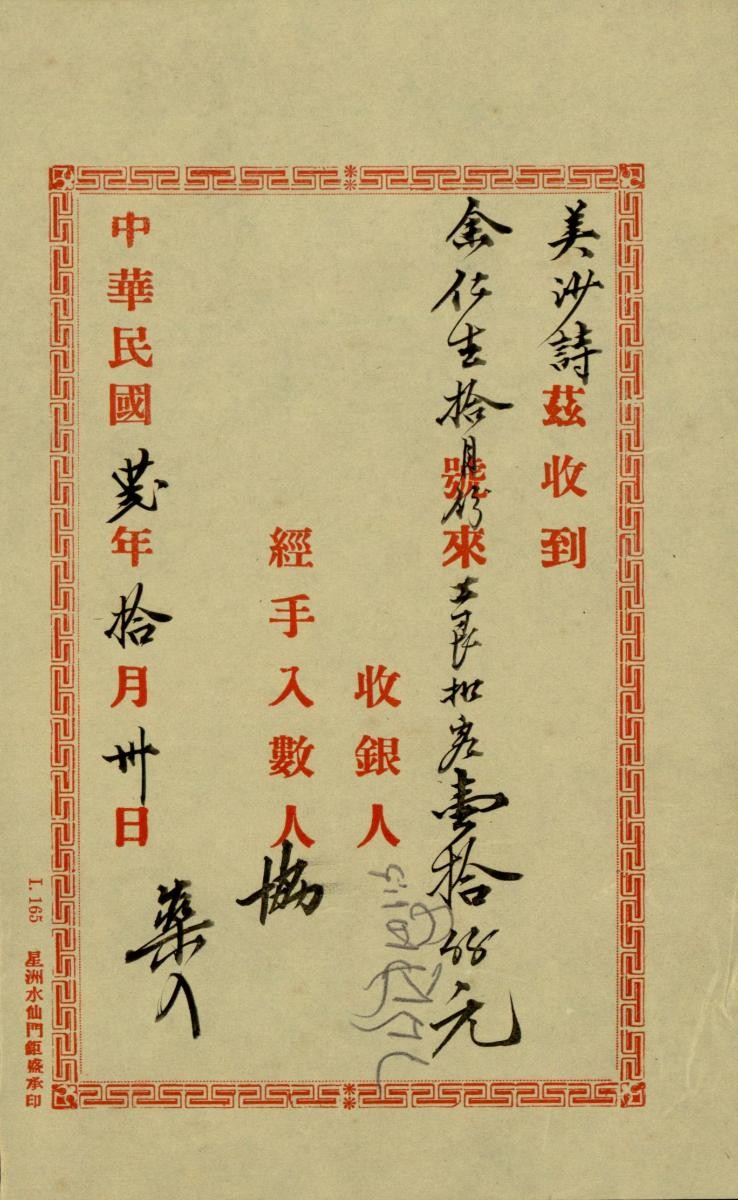 美沙詩茲收到
余仕生拾月份號來工艮扣完壹拾元
收銀人
經手入數人協
中華民國年拾月卅日
藥入
L. 165 星洲水仙門鉅盛承印